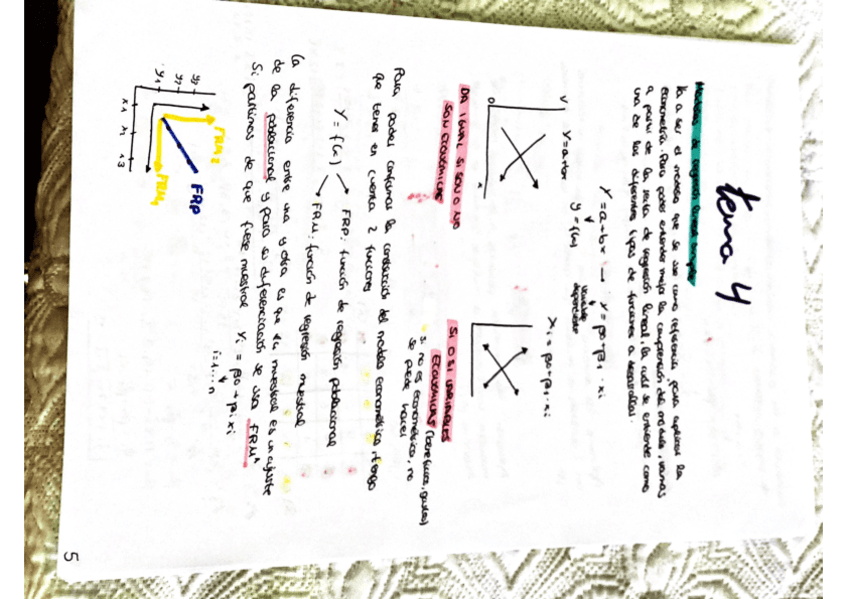 tema 4
Modelo de regresión lineal simple
Va a ser el modelo que se use como referencia, para explicar la
econometría. Para poder entender mejor la comprensión del modelo, vamos
a partir de la recta de regresión lineal, la cual se entiende como
una de las diferentes tipos de funciones a desarrollar.
Y = a + bx — Y = β0 + β1 · xi
y = f(x)
variable
dependiente
Y = a + bx
0
x
DA IGUAL SI SON O NO
SON ECONÓMICAS
= β0 + β1 · xi
SI O SI VARIABLES
ECONÓMICAS (beneficios, gastos)
si no es económico, no
se puede hacer
Para poder confirmar la construcción del modelo econométrico tengo
que tener en cuenta 2 funciones
Y = f(x)
FRP: función de regresión poblacional
FRM: función de regresión muestral
La diferencia entre una y otra es que la muestral es un ajuste
de la poblacional y para su diferenciación se usa FRM^
Si partimos de que fuese muestral Yi = β0 + β1 xi
i = 1 ... n
y1 y2 y3
FRM2
FRP
FRM1
5